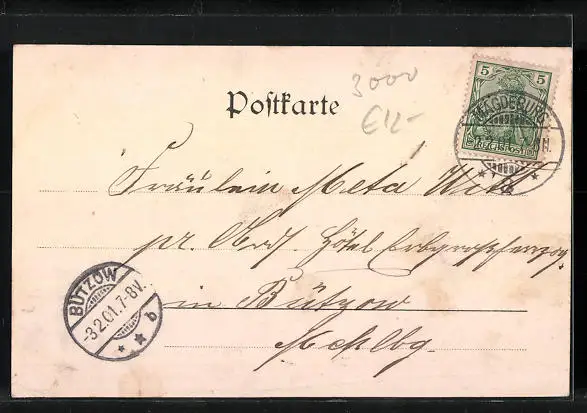 3000
Postkarte
€12-
5 5
REICHSPOST
MAGDEBURG
Fräulein Meta Witt
pr. Adr. Hôtel Erbgrossherzog
in Bützow
Mcklbg.
BÜTZOW
-3.2.01.7-8V.
* * b